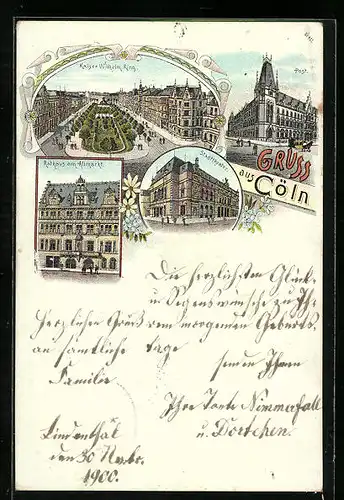 Kaiser Wilhelm Ring.
Post.
Rathaus am Altmarkt.
Stadttheater.
GRUSS
aus
Cöln
Die herzlichsten Glück-
u. Segenswünsche zu Ih-
Herzlichen Gruß rem morgenden Geburts-
an sämtliche tage
senden Ihnen
Familie
Ihre Tante Nimmerfall
Lindenthal u. Dortchen.
den 30 Novbr.
1900.